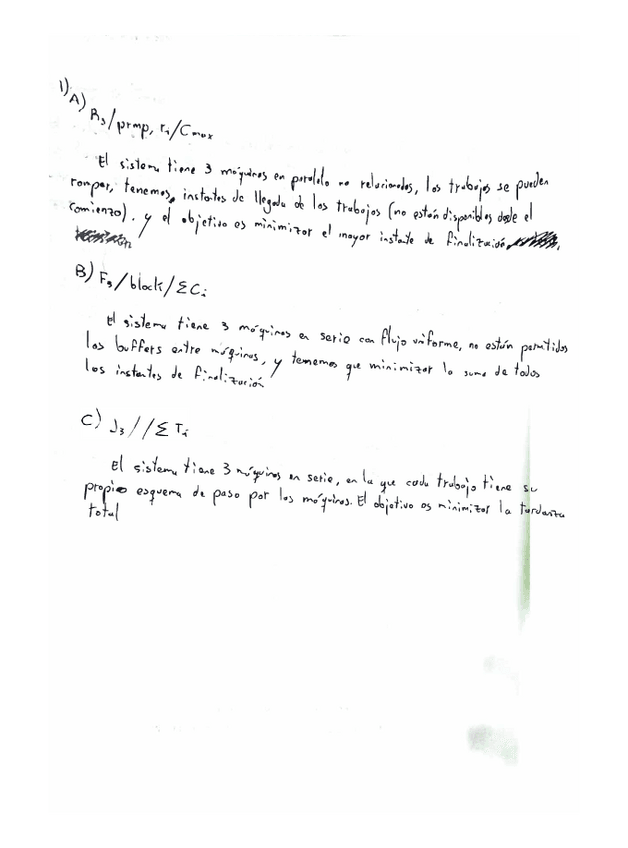 1) A) R₃/prmp, rᵢ/Cmax
El sistema tiene 3 máquinas en paralelo no relacionadas, los trabajos se pueden
romper, tenemos, instantes de llegada de los trabajos (no están disponibles desde el
comienzo). y el objetivo es minimizar el mayor instante de finalización.
B) F₃/block/ΣCᵢ
El sistema tiene 3 máquinas en serie con flujo uniforme, no están permitidos
los buffers entre máquinas, y tenemos que minimizar la suma de todos
los instantes de finalización
C) J₃//ΣTᵢ
El sistema tiene 3 máquinas en serie, en la que cada trabajo tiene su
propio esquema de paso por las máquinas. El objetivo es minimizar la tardanza
total